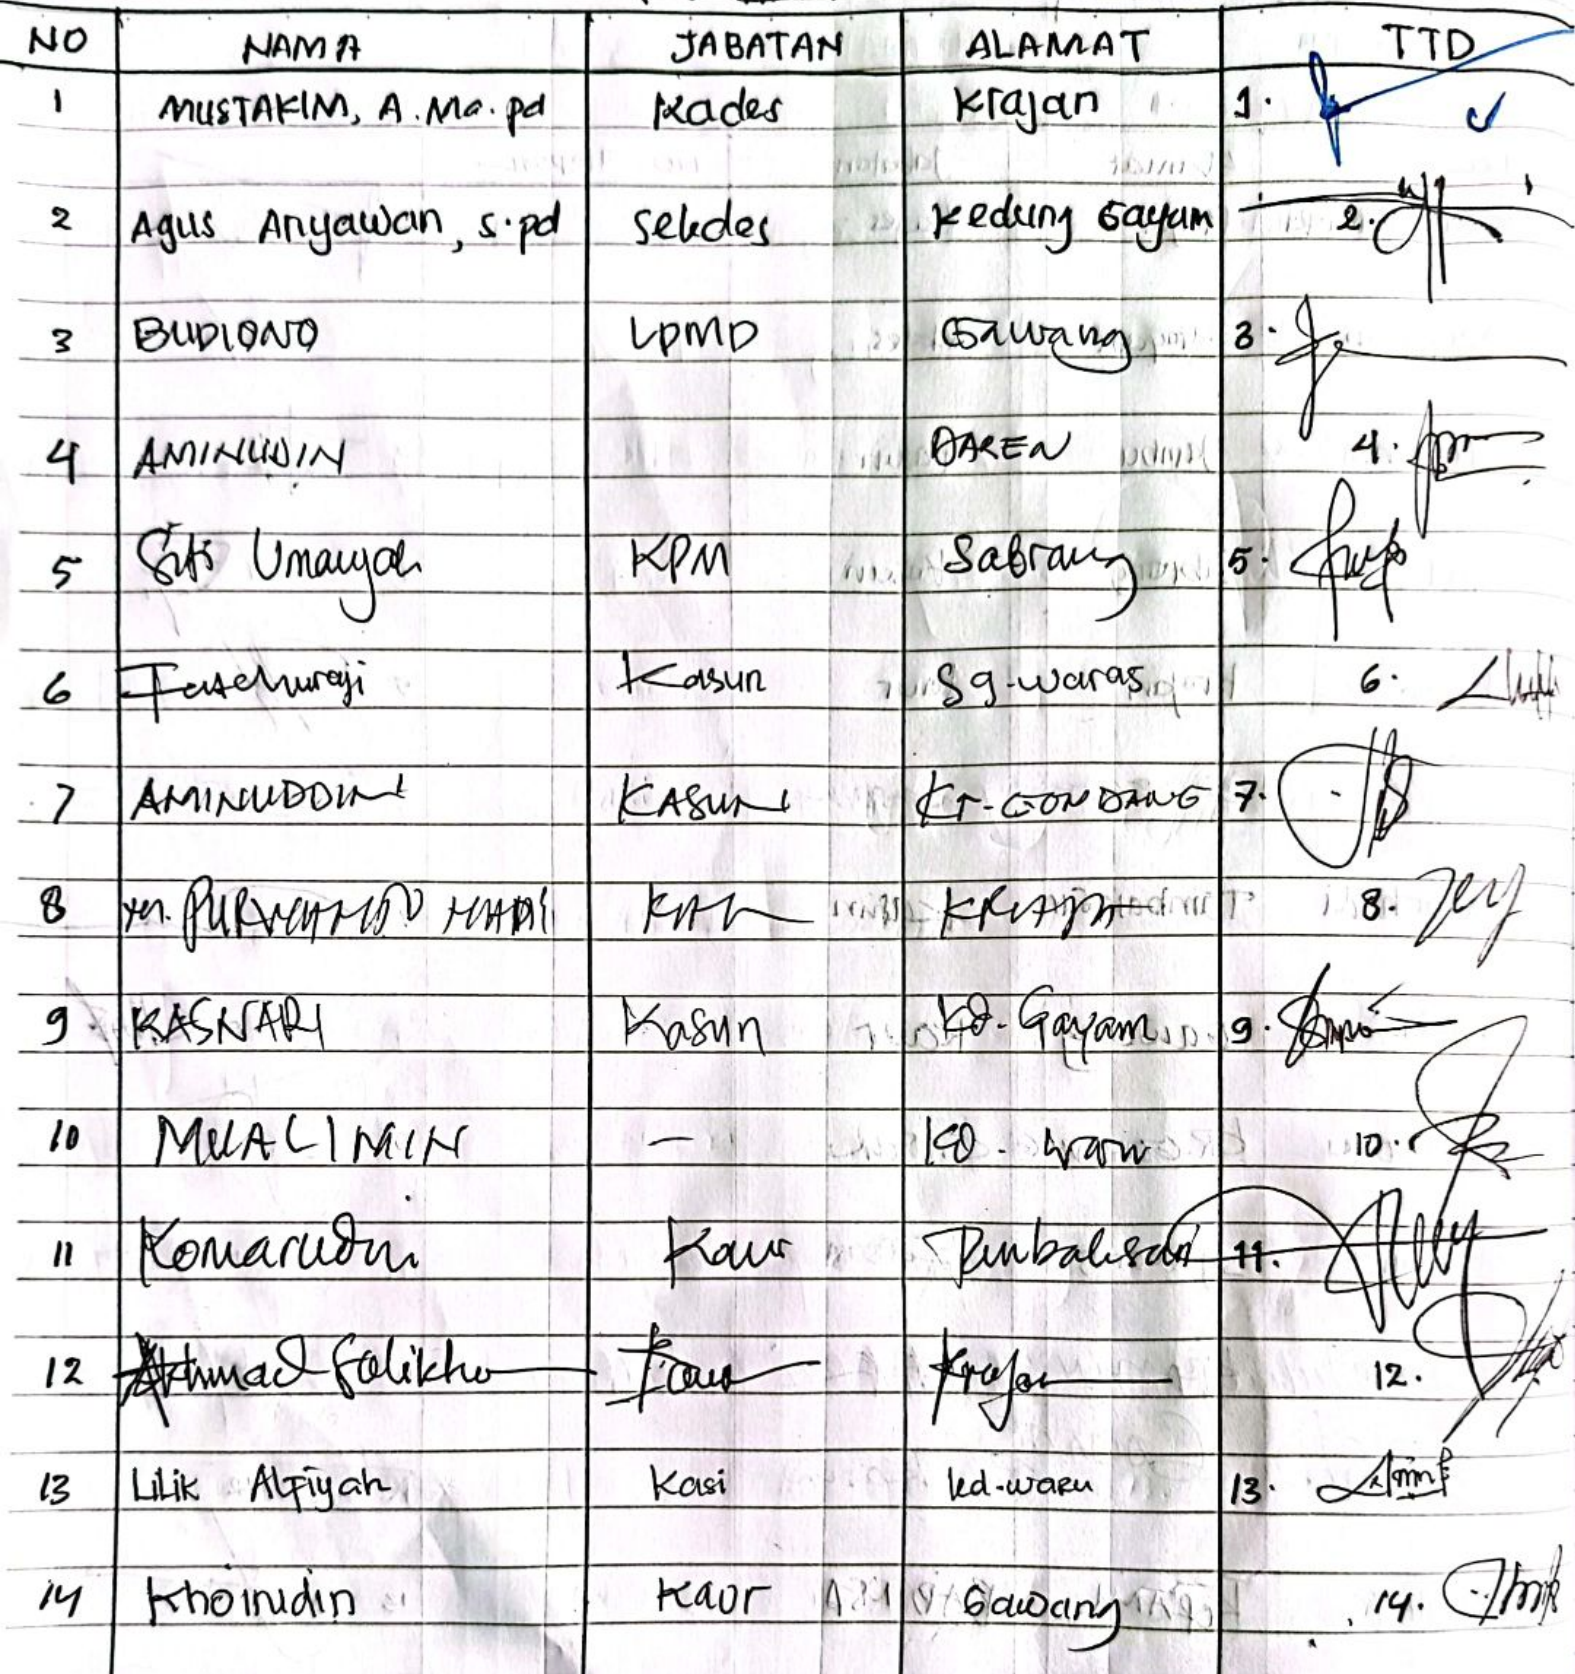 NO NAMA JABATAN ALAMAT TTD
1 MUSTAKIM, A.Ma.pd Kades Krajan 1.
2 Agus Ariyawan, S.pd Sekdes Kedung Gayam 2.
3 BUDIONO LPMD Gawang 3.
4 AMINUDIN DAREN 4.
5 Siti Umaiyah KPM Sabrang 5.
6 Kasun Sg-waras 6.
7 AMINUDDIN KASUN KT-GONDANG 7.
8 M. 8.
9 KASNARI Kasun KD-Gayam 9.
10 MUALIMIN — KD-waru 10.
11 Komarudin Kaur 11.
12 Akhmad Solikhu Kaur Krajan 12.
13 Lilik Alfiyah Kasi kd-waru 13.
14 Khoirudin Kaur Gawang 14.